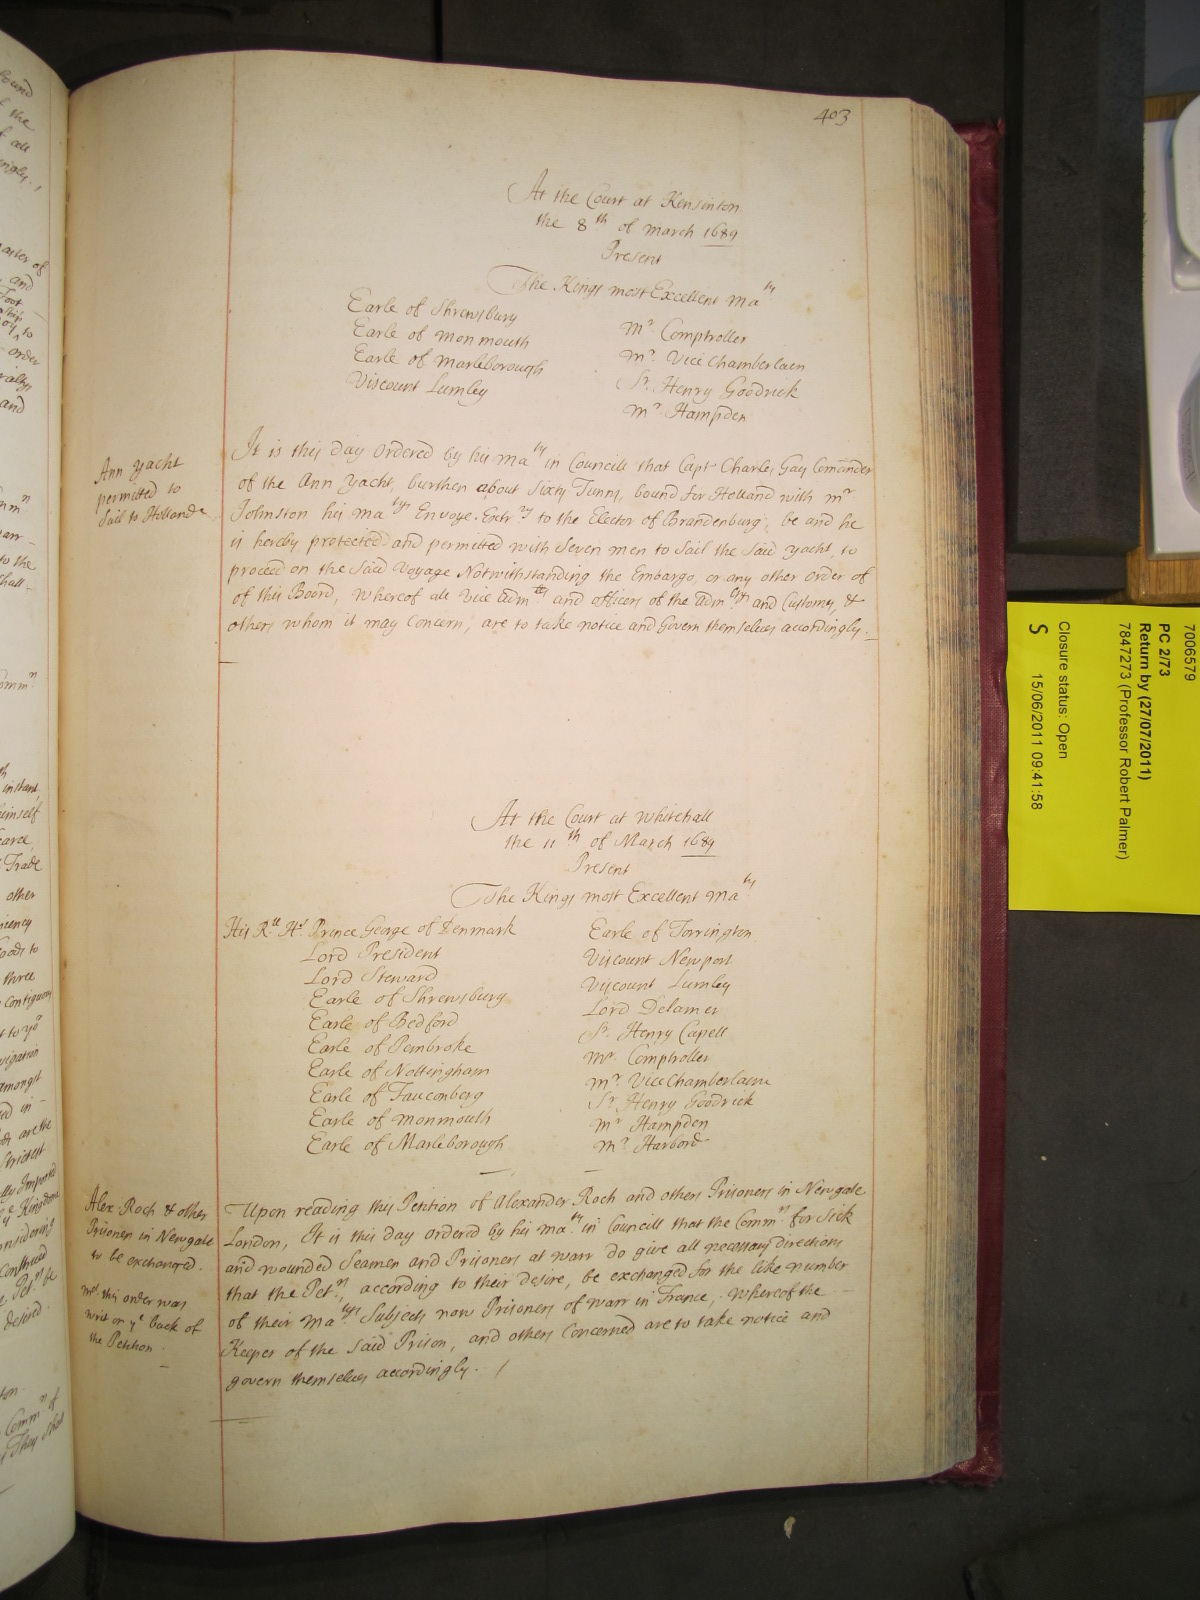 403
At the Court at Kensinton
the 8th of March 1689
Present
The Kings most Excellent Maty
Earle of Shrewsbury
Earle of Monmouth
Earle of Marleborough
Viscount Lumley
Mr Comptroller
Mr Vice Chamberlain
Sr Henry Goodrick
Mr Hampden
Ann Yacht
permitted to
Sail to Holland
It is this day Ordered by his Maty in Councill that Capt Charles Gay Comander
of the Ann Yacht, burthen about Sixty Tunns, bound for Holland with Mr
Johnston his Matys Envoye Extry to the Elector of Brandenburg, be and he
is hereby protected and permitted with Seven men to Sail the Said Yacht, to
proceed on the Said Voyage Notwithstanding the Embargo, or any other Order of
of this Board, whereof all Vice Admlls and officers of the Admlty and Customs, &
others whom it may Concern, are to take notice and Govern themselves accordingly.
At the Court at Whitehall
the 11th of March 1689
Present
The Kings most Excellent Maty
His Rll Hs Prince George of Denmark
Lord President
Lord Steward
Earle of Shrewsbury
Earle of Bedford
Earle of Pembroke
Earle of Nottingham
Earle of Fauconberg
Earle of Monmouth
Earle of Marleborough
Earle of Torrington
Viscount Newport
Viscount Lumley
Lord Delamer
Sr Henry Capell
Mr Comptroller
Mr Vice Chamberlaine
Sr Henry Goodrick
Mr Hampden
Mr Harbord
Alex Roch & other
Prisoners in Newgate
to be exchanged.
this order was
writ on ye back of
the Petition
Upon reading this Petition of Alexander Roch and others Prisoners in Newgate
London, It is this day ordered by his Maty in Councill that the Commrs for Sick
and wounded Seamen and Prisoners at warr do give all necessary directions
that the Petrs, according to their desire, be exchanged for the like number
of their Matys Subjects now Prisoners of warr in France, whereof the
Keeper of the Said Prison, and others Concerned are to take notice and
govern themselves accordingly.
7006579
PC 2/73
Return by (27/07/2011)
7847273 (Professor Robert Palmer)
Closure status: Open
S 15/06/2011 09:41:58